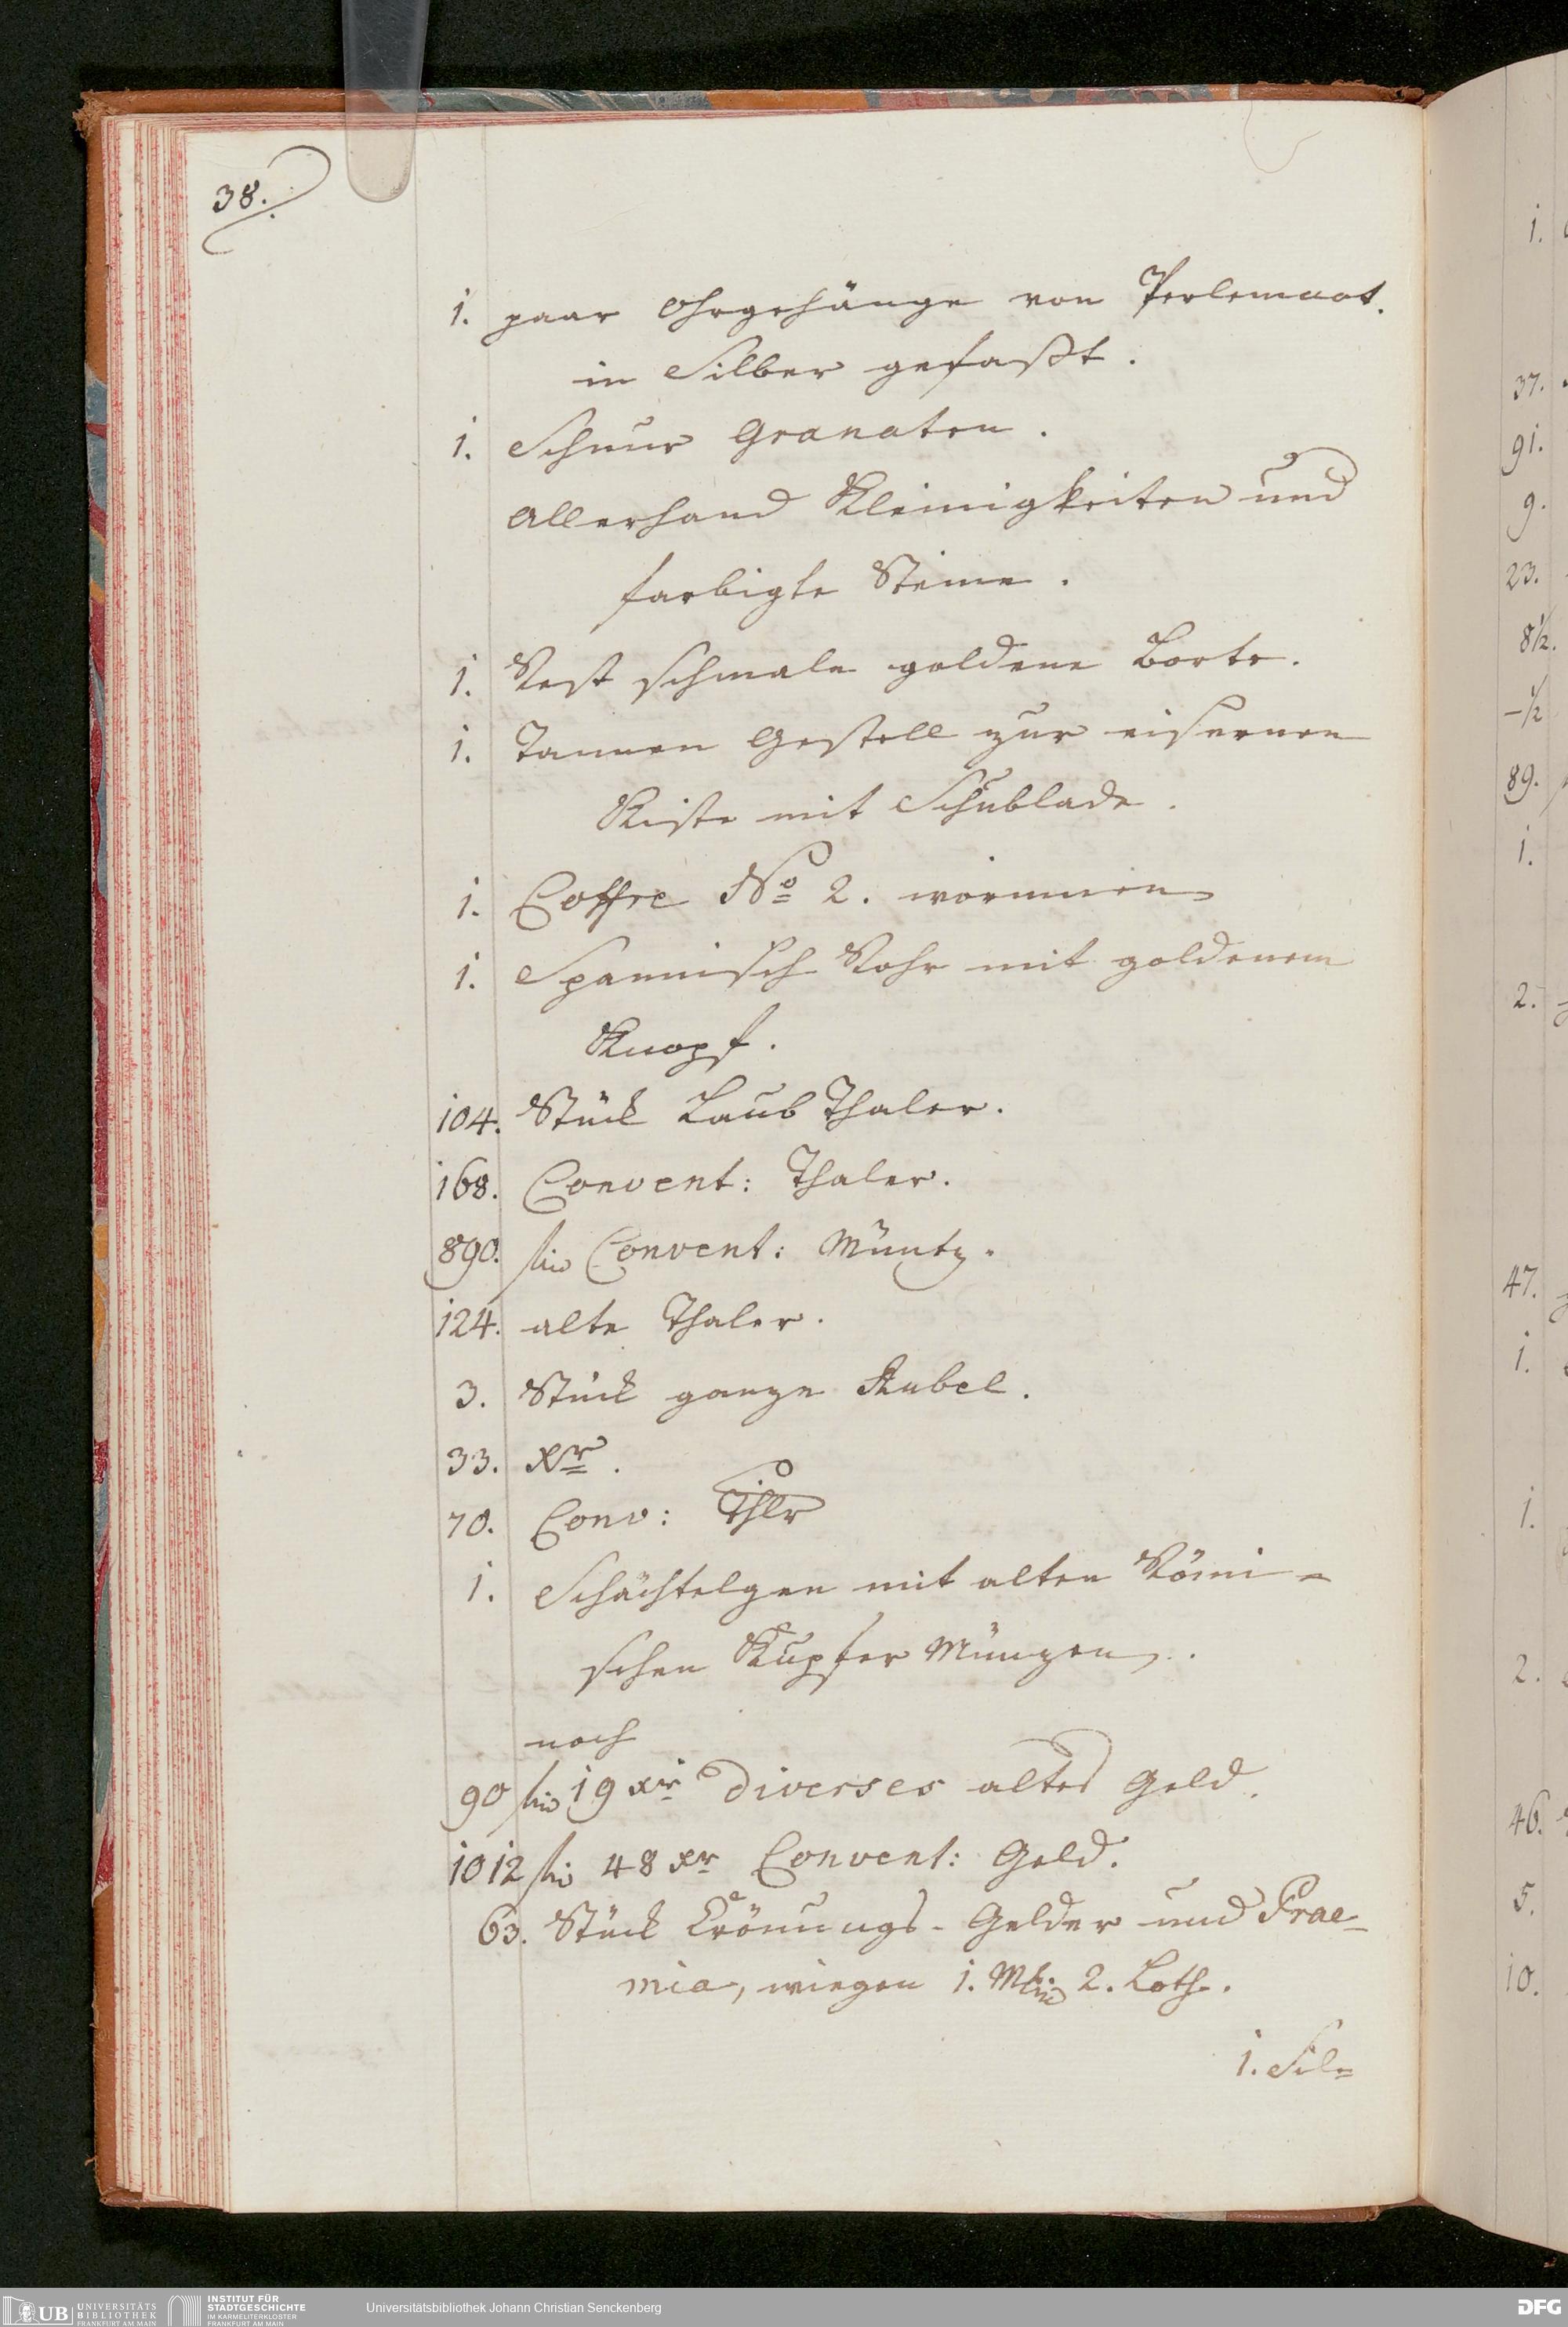 38.
1. paar Ohrgehänge von Perlemaat.
in Silber gefaßt.
1. Schnur Granaten.
Allerhand Kleinigkeiten und
farbigte Steine.
1. Rest schmale goldene Borte.
1. Tannen Gestell zur eisernen
Kiste mit Schublade.
1. Coffre No 2. worinnen
1. Spannisch Rohr mit goldenem
Knopf.
104. Stück Laub Thaler.
168. Convent: Thaler.
890. fl Convent: Müntz.
124. alte Thaler.
3. Stück ganze Rubel.
33. Xr.
70. Conv: Thlr
1. Schächtelgen mit alten Römi-
schen Kupfer Münzen.
noch
90 fl 19 xr diverses altes Geld.
1012 fl 48 xr Convent: Geld.
63. Stück Crönungs-Gelder und Prae-
mia, wiegen 1. Mk. 2. Loth.
1. Sil=
1.
37.
91.
9.
23.
8½.
–½
89.
1.
2.
47.
1.
1.
2.
46.
5.
10.
UB UNIVERSITÄTS
BIBLIOTHEK
FRANKFURT AM MAIN
INSTITUT FÜR
STADTGESCHICHTE
IM KARMELITERKLOSTER
FRANKFURT AM MAIN
Universitätsbibliothek Johann Christian Senckenberg
DFG